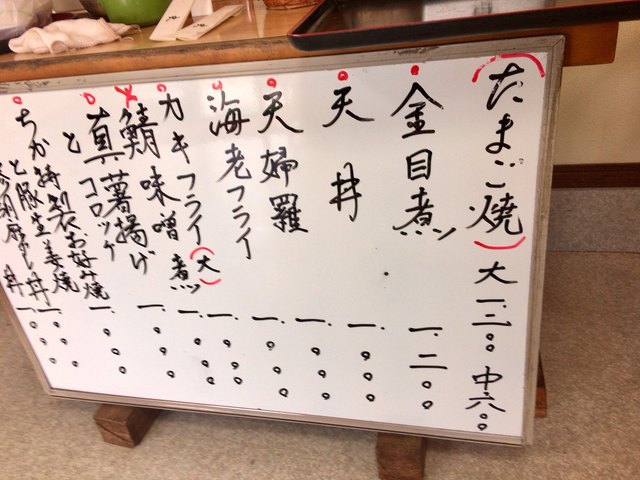 (たまご焼) 大 一、三〇〇 中 六〇〇
金目煮 一、二〇〇
天丼 一、〇〇〇
天婦羅 一、〇〇〇
海老フライ 一、〇〇〇
カキフライ(大) 一、〇〇〇
鯖味噌煮 一、〇〇〇
真薯揚げ
とコロッケ 一、〇〇〇
特製お好み焼
と豚生姜焼 一、〇〇〇